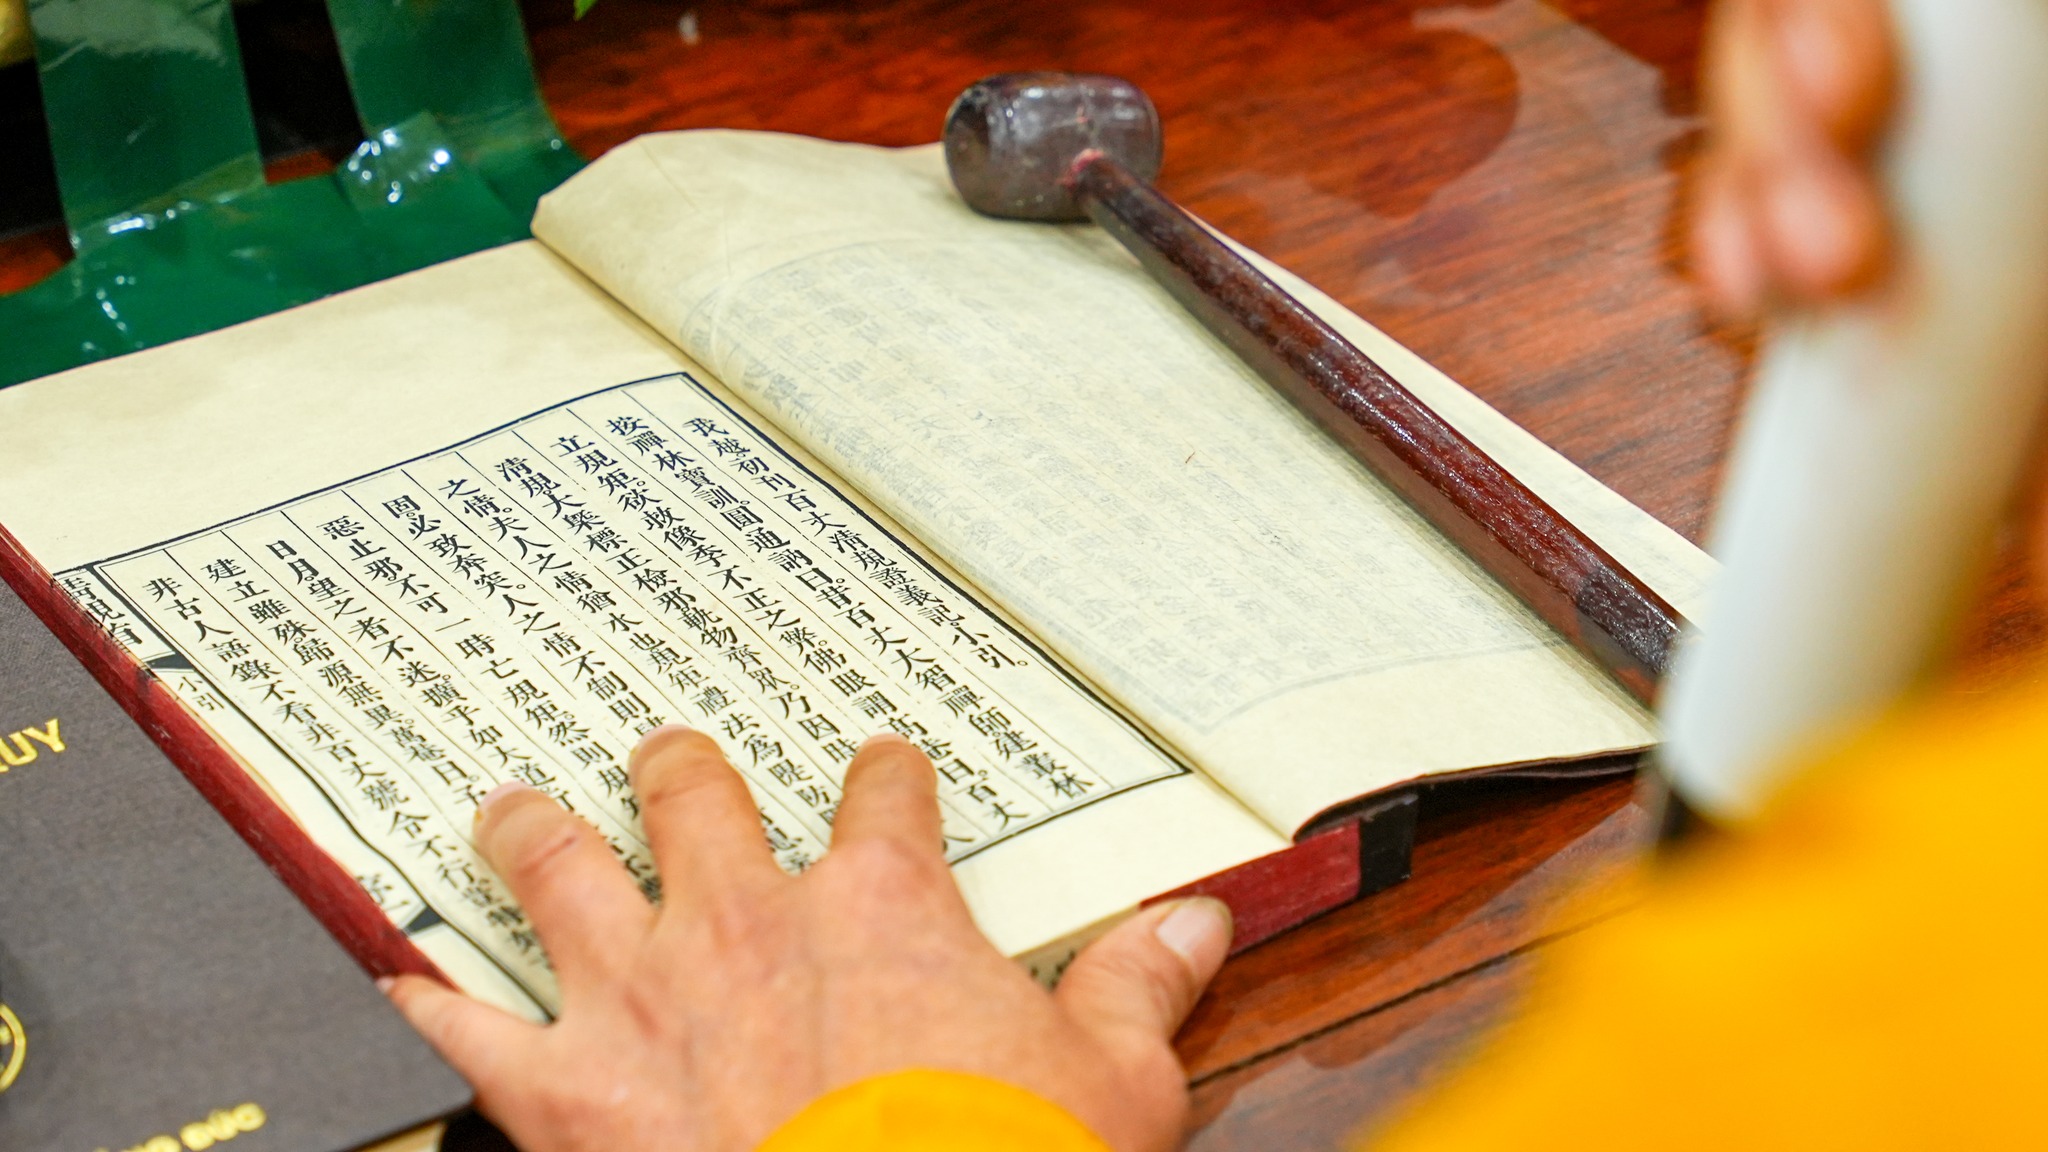 我越初刊百丈清規證義記小引。
按禪林寶訓。圓通訥曰。昔百丈大智禪師。建叢林
立規矩。欲救像季不正之弊。佛眼謂高菴曰。百丈
清規。大槩標正檢邪。軌物齊眾。乃因時
之情。夫人之情猶水也。規矩禮法爲隄防
固。必致奔突。人之情不制則肆
惡止邪。不可一時亡規矩。然則規矩
日月。望之者不迷。擴乎如大道
建立雖殊。歸源無異。萬菴曰。予
非古人語錄不看。非百丈號令不行。豈
清規百
小引
UY
ĐỨC